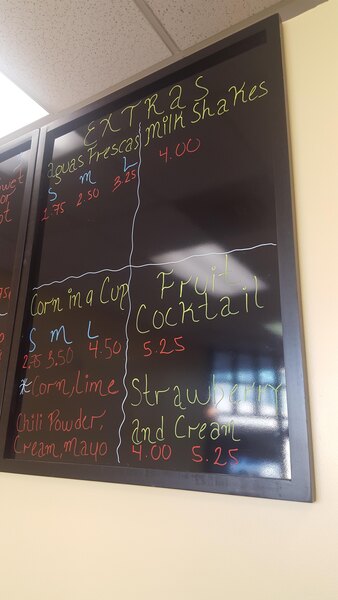 EXTRAS
aguas Frescas
S M L
1.75 2.50 3.25
milk shakes
4.00
Corn in a Cup
S M L
2.75 3.50 4.50
*Corn, Lime
Chili Powder,
Cream, mayo
Fruit
Cocktail
5.25
Strawberry
and Cream
4.00 5.25